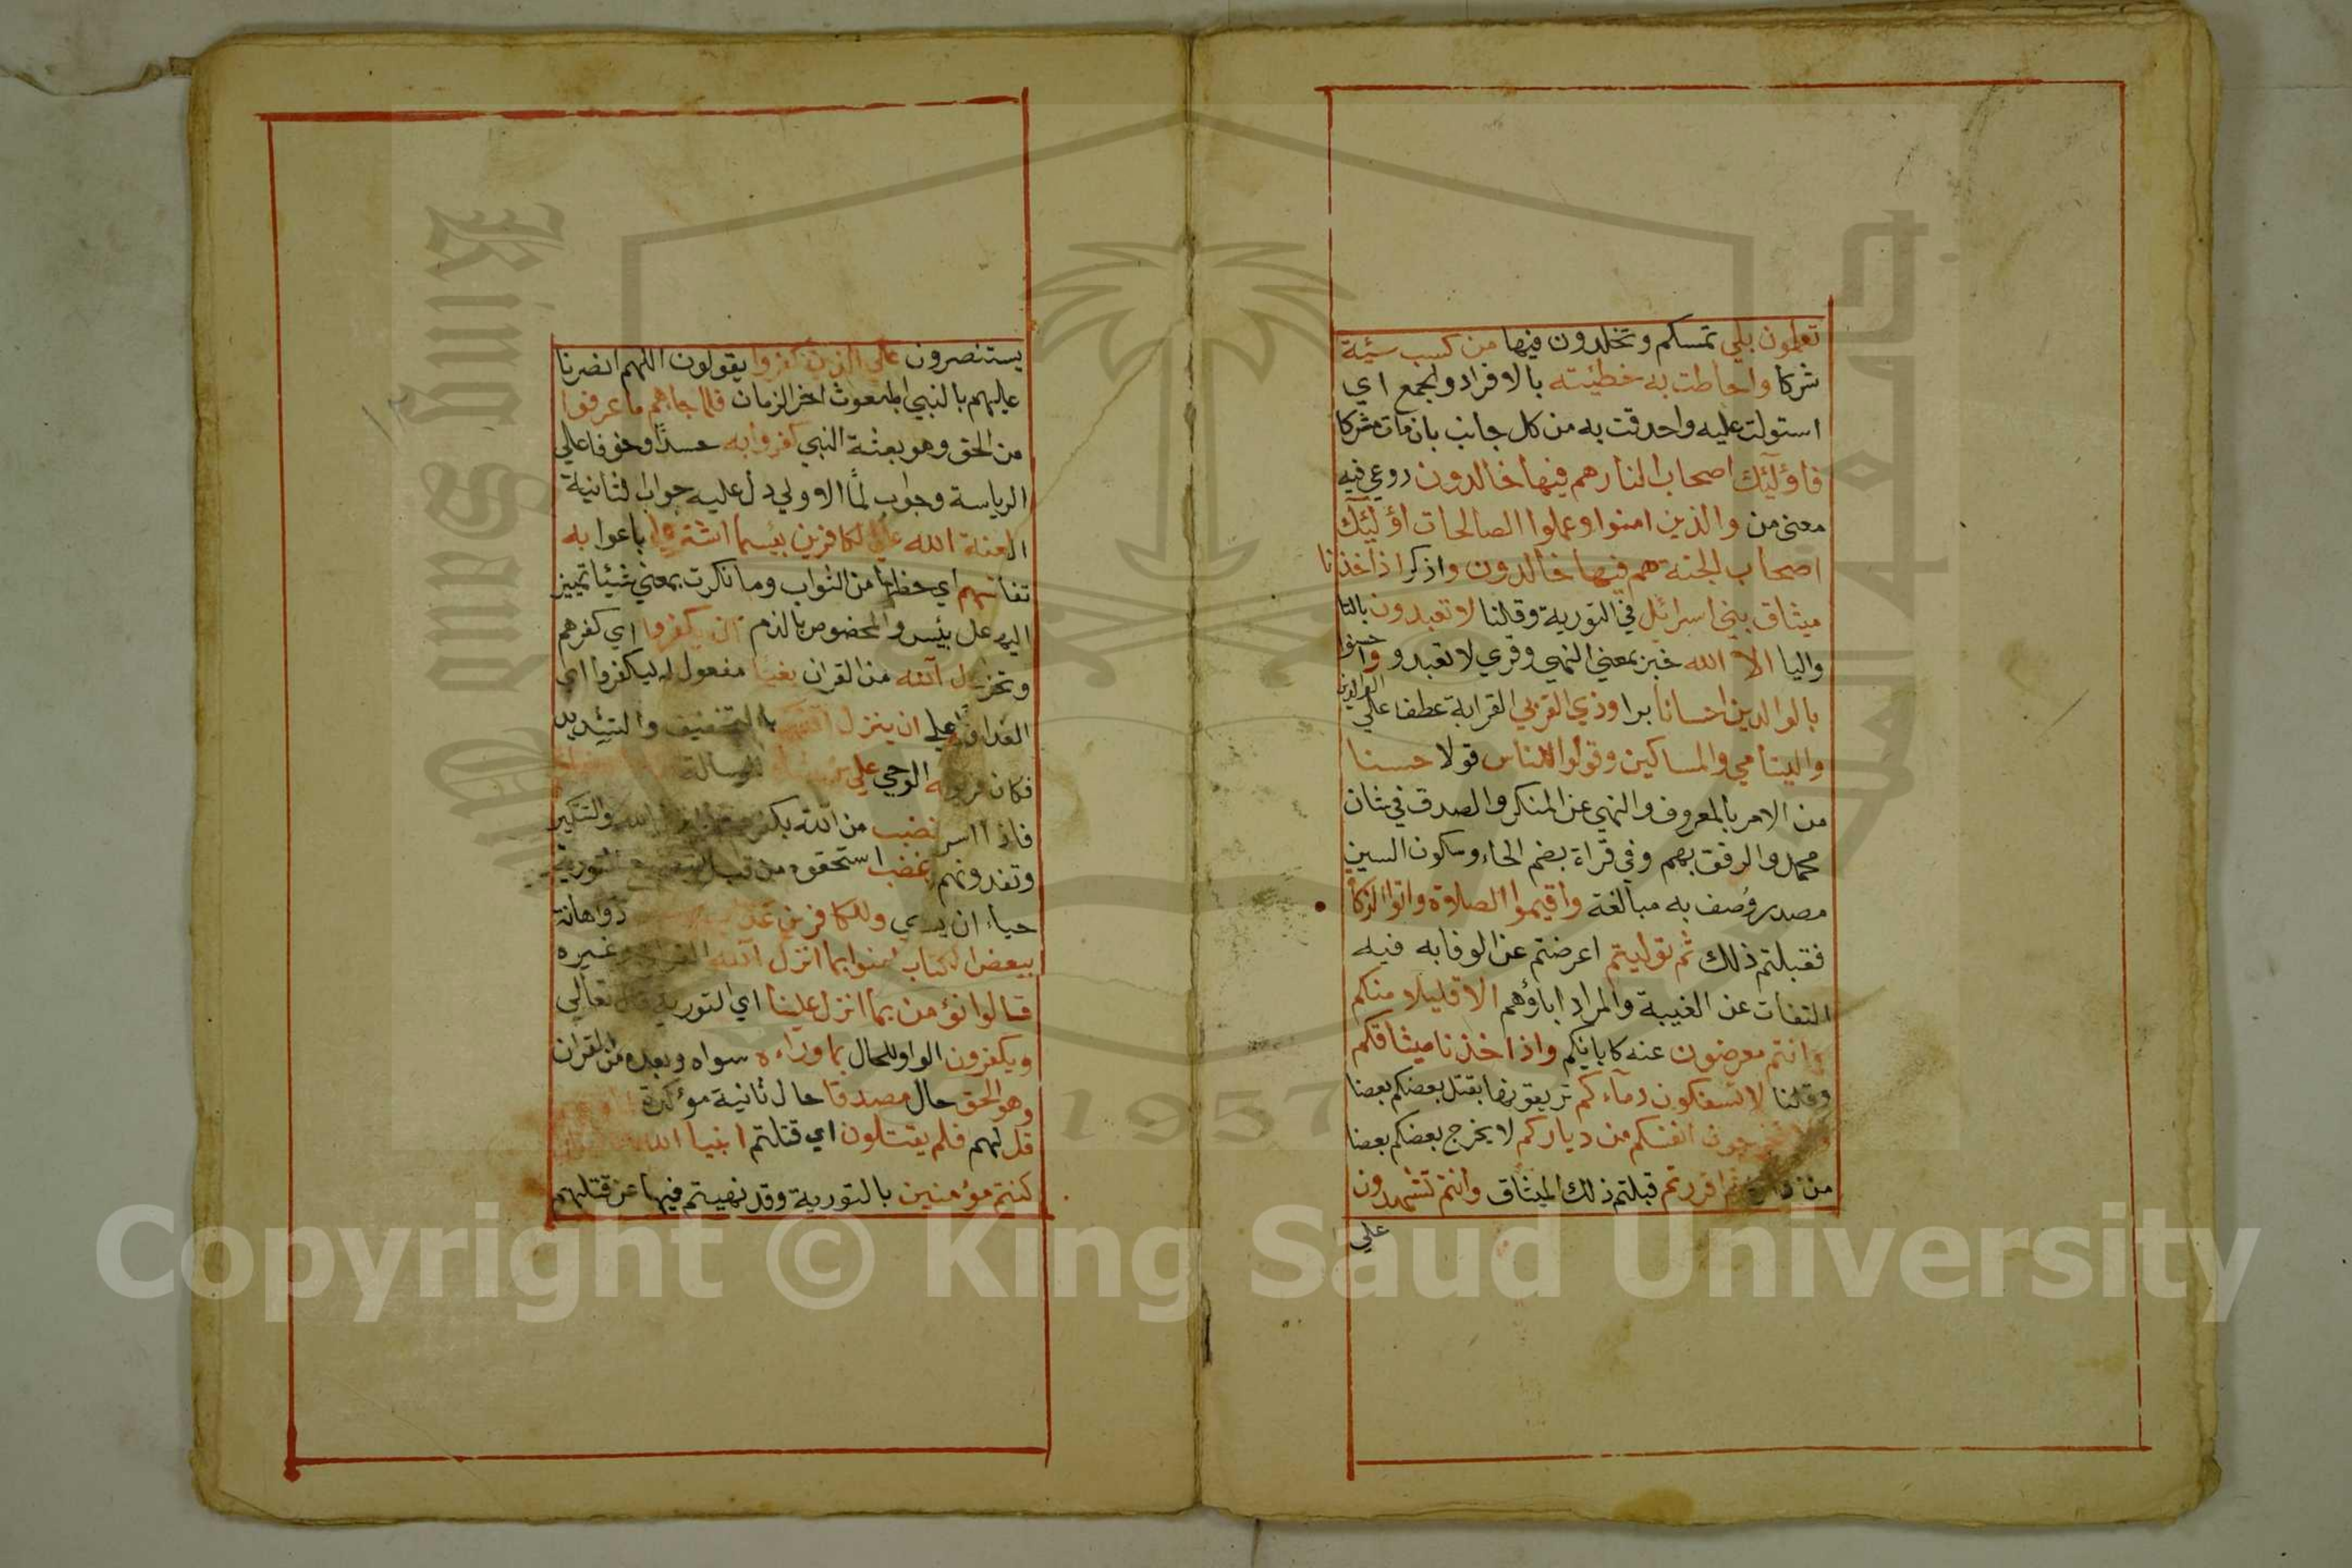 تعلمون بلي تمسكم وتخلدون فيها من كسب سيئة
شركا واحاطت به خطيئته بالافراد والجمع اي
استولت عليه واحدقت به من كل جانب بان مات مشركا
فاؤلئك اصحاب النار هم فيها خالدون روعي فيه
معني من والذين امنوا وعملوا الصالحات اؤلئك
اصحاب الجنة هم فيها خالدون واذكر اذ اخذنا
ميثاق بني اسرائيل في التورية وقلنا لا تعبدون بالتا
واليا الا الله خبر بمعني النهي وقري لا تعبدوا واحسنوا
بالوالدين احسانا برا وذي القربي القرابة عطفا علي الوالدين
واليتامي والمساكين وقولوا للناس قولا حسنا
من الامر بالمعروف والنهي عن المنكر والصدق في شان
محمد والرفق بهم وفي قراة بضم الحاء وسكون السين
مصدر وُصف به مبالغة واقيموا الصلاوة واتوا الزكاة
فقبلتم ذلك ثم توليتم اعرضتم عن الوفا به فيه
التفات عن الغيبة والمراد اباؤهم الا قليلا منكم
وانتم معرضون عنه كابائكم واذ اخذنا ميثاقكم
وقلنا لا تسفكون دمآءكم تريقونها بقتل بعضكم بعضا
ولا تخرجون انفسكم من دياركم لا يخرج بعضكم بعضا
من داره ثم اقررتم قبلتم ذلك الميثاق وانتم تشهدون
علي
يستنصرون علي الذين كفروا يقولون اللهم انصرنا
عليهم بالنبي المبعوث اخر الزمان فلما جاهم ما عرفوا
من الحق وهو بعثة النبي كفروا به حسدًا وخوفا علي
الرياسة وجواب لمّا الاولي دل عليه جواب الثانية
العنة الله علي الكافرين بئسما اشتروا باعوا به
اي حظها من الثواب وما نكرت بمعني شيئا تمييز
بئس والمخصوص بالذم ان يكفروا اي كفرهم
الله من القران بغيا مفعول له ليكفروا اي
علي ان ينزل الله بالتخفيف والتشديد
الوحي علي للرسالة
من الله بكفرهم والتنكير
بغضب استحقوه من قبل التورية
وللكافرين ذو اهانة
امنوا بما انزل الله القران وغيره
قالوا نؤمن بما انزل علينا اي التورية قال تعالي
ويكفرون الواو للحال بما وراءه سواه وبعده من القران
وهو الحق حال مصدقا حال ثانية مؤكدة
قل لهم فلم يقتلون اي قتلتم انبيا الله
كنتم مؤمنين بالتورية وقد نهيتم فيها عن قتلهم
Copyright © King Saud University
King Saud
1957